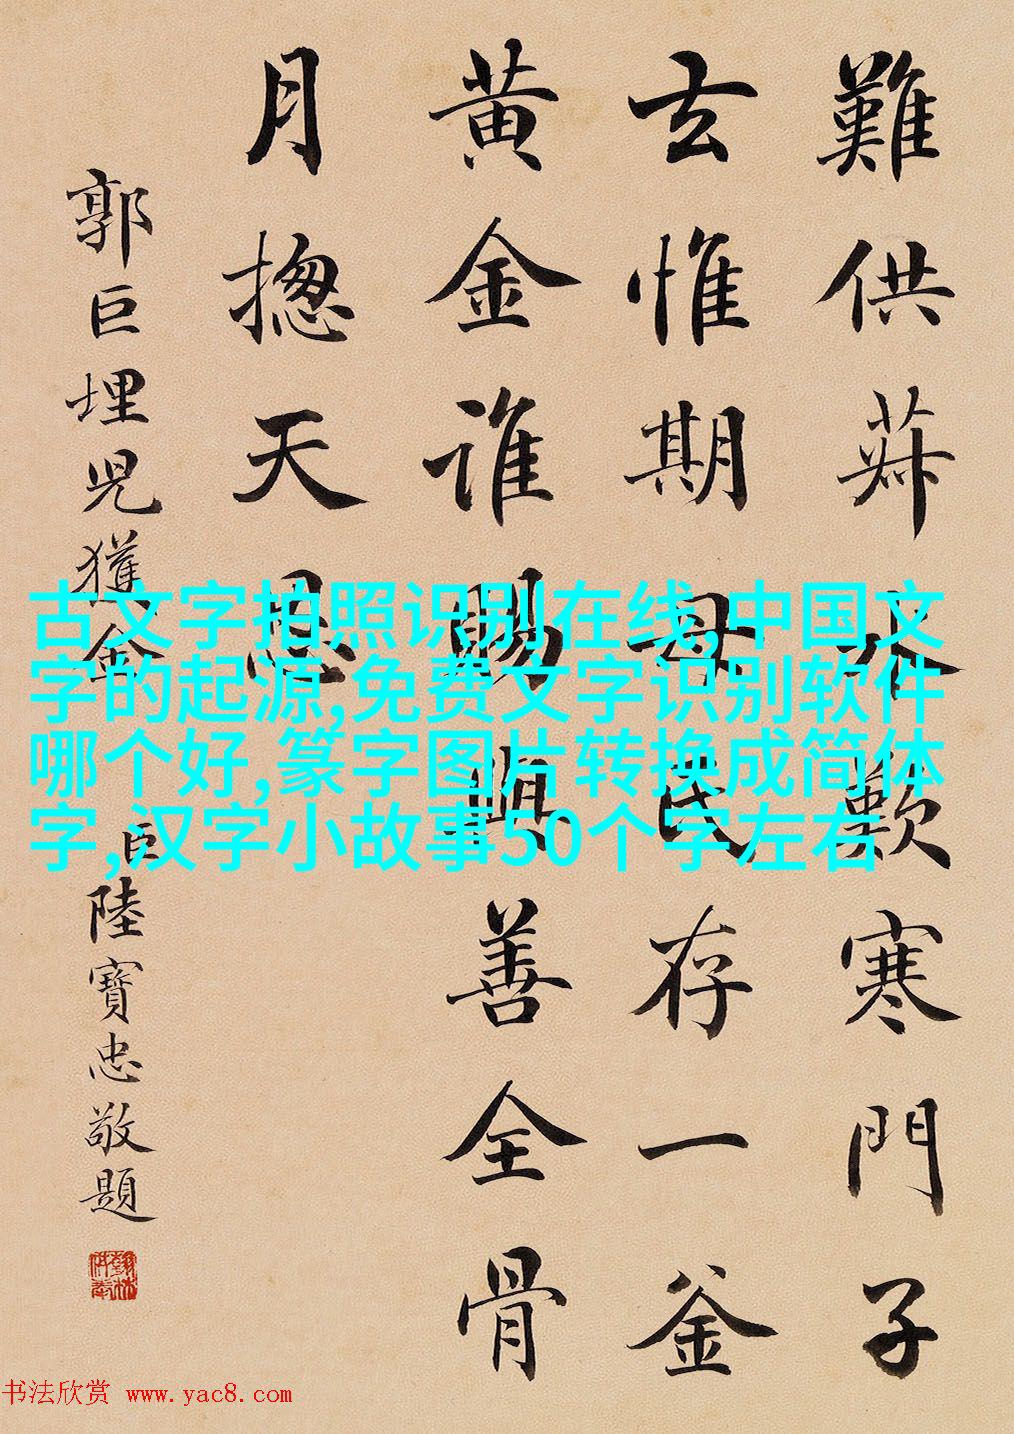 難供菽水歎寒門子
玄惟期母氏存一釜
黄金誰賜與善全骨
月揔天恩
郭巨埋児獲金
臣陸寶忠敬題
翰林供奉
古文字拍照识别在线,中国文
字的起源,免费文字识别软件
哪个好,篆字图片转换成简体
字,汉字小故事50个字左右
书法欣赏 www.yac8.com